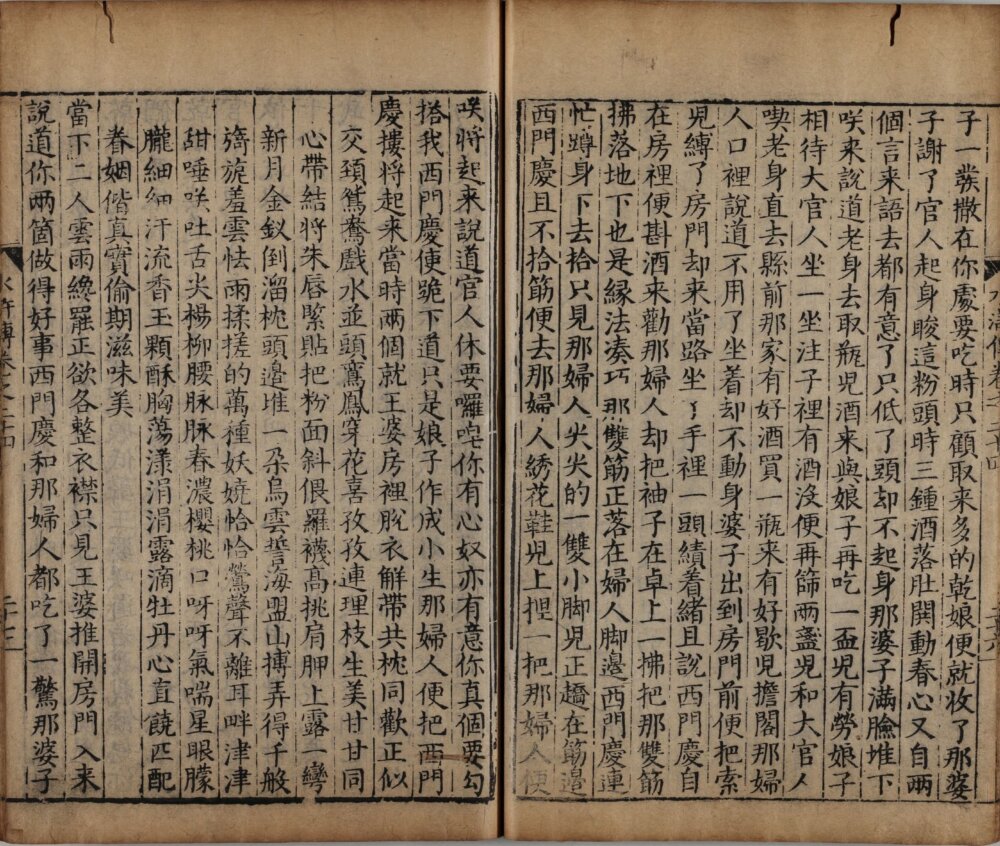 子一發撒在你處要吃時只顧取来多的乾娘便就收了那婆
子謝了官人起身睃這粉頭時三鍾酒落肚閧動春心又自兩
個言来語去都有意了只低了頭却不起身那婆子滿臉堆下
咲来說道老身去取瓶児酒来與娘子再吃一盃児有勞娘子
相待大官人坐一坐注子裡有酒没便再篩兩盞児和大官人
喫老身直去縣前那家有好酒買一瓶来有好歇児擔閣那婦
人口裡說道不用了坐着却不動身婆子出到房門前便把索
児縛了房門却来當路坐了手裡一頭績着緒且說西門慶自
在房裡便斟酒来勸那婦人却把袖子在卓上一拂把那雙筯
拂落地下也是緣法湊巧那雙筯正落在婦人脚邉西門慶連
忙蹲身下去拾只見那婦人尖尖的一雙小脚児正趫在筯邉
西門慶且不拾筯便去那婦人綉花鞋児上捏一把那婦人便
咲將起来說道官人休要囉唣你有心奴亦有意你真個要勾
搭我西門慶便跪下道只是娘子作成小生那婦人便把西門
慶摟將起来當時兩個就王婆房裡脫衣觧帶共枕同歡正似
交頸鴛鴦戲水並頭鸞鳳穿花喜孜孜連理枝生美甘甘同
心帶結將朱唇緊貼把粉面斜偎羅襪髙挑肩胛上露一彎
新月金釵倒溜枕頭邉堆一朶烏雲誓海盟山搏弄得千般
旖旎羞雲怯雨揉搓的萬種妖嬈恰恰鶯聲不離耳畔津津
甜唾咲吐舌尖楊柳腰脉脉春濃櫻桃口呀呀氣喘星眼朦
朧細細汗流香玉顆酥胸蕩漾涓涓露滴牡丹心直饒匹配
眷姻偕真實偷期滋味美
當下二人雲雨纔罷正欲各整衣襟只見王婆推開房門入来
說道你兩箇做得好事西門慶和那婦人都吃了一驚那婆子
水滸傳卷之二十四
二十三